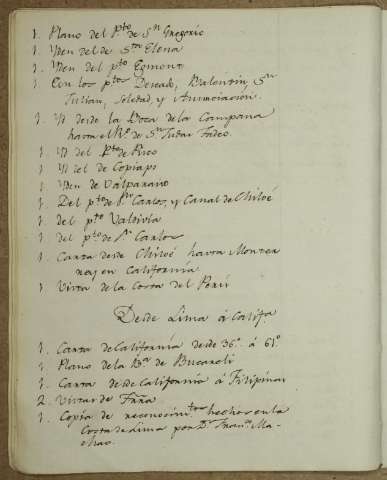 1. Plano del P.to de S.n Gregorio
1. Yden del de S.ta Elena
1. Yden del p.to Egmont
1. Con los p.tos Deseado, Valentin, S.n
Julian, Soledad, y Anunciación.
1. Yd desde la Boca de la Campana
hasta el R.o de S.n Judas Tadeo.
1. Yd del P.to de Pico
1. Yd el de Copiapo
1. Yden de Valparaiso
1. Del p.to de S.n Carlos, y Canal de Chiloé
1. del p.to Valdivia
1. del p.to de S.n Carlos
1. Carta desde Chiloé hasta Monter
rey en California
1. Vista de la Costa del Perú
Desde Lima á Califa
1. Carta de California desde 36.º á 61.º
1. Plano de la B.a de Bucareli
1. Carta desde California á Filipinas
2. Vistas de
1. Copia de reconocim.tos hechos en la
Costa de Lima por D.n Fran.co Ma-
chao.